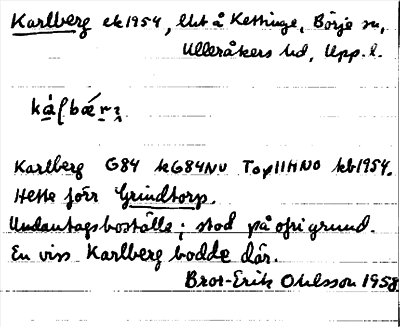 Karlberg ek1954, lht å Kettinge, Börje sn,
Ulleråkers hd, Upp.l.
Karlberg G84 kG84NV Top11HNO kb1954.
Hette förr Grindtorp.
Undantagsboställe; stod på ofri grund.
En viss Karlberg bodde där.
Bror-Erik Ohlsson 1958